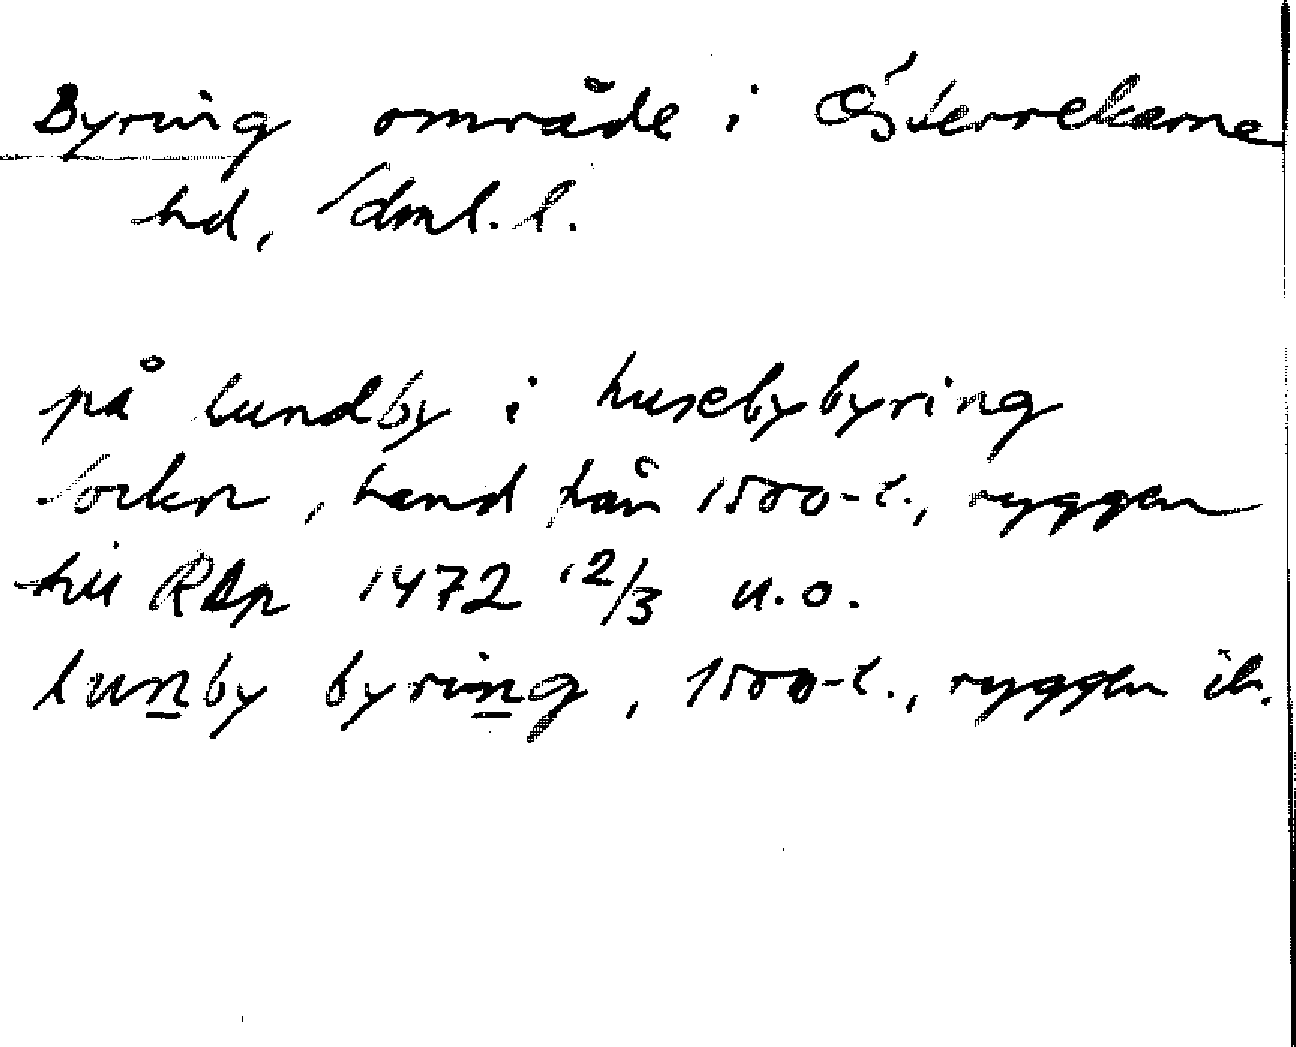 Byring område i Österrekarne
hd, Sdml. l.
på lundby i husebybyring
Sockn, hand från 1500-t., ryggen
till RAp 1472 12/3 u.o.
lunby byring, 1500-t., ryggen ib.